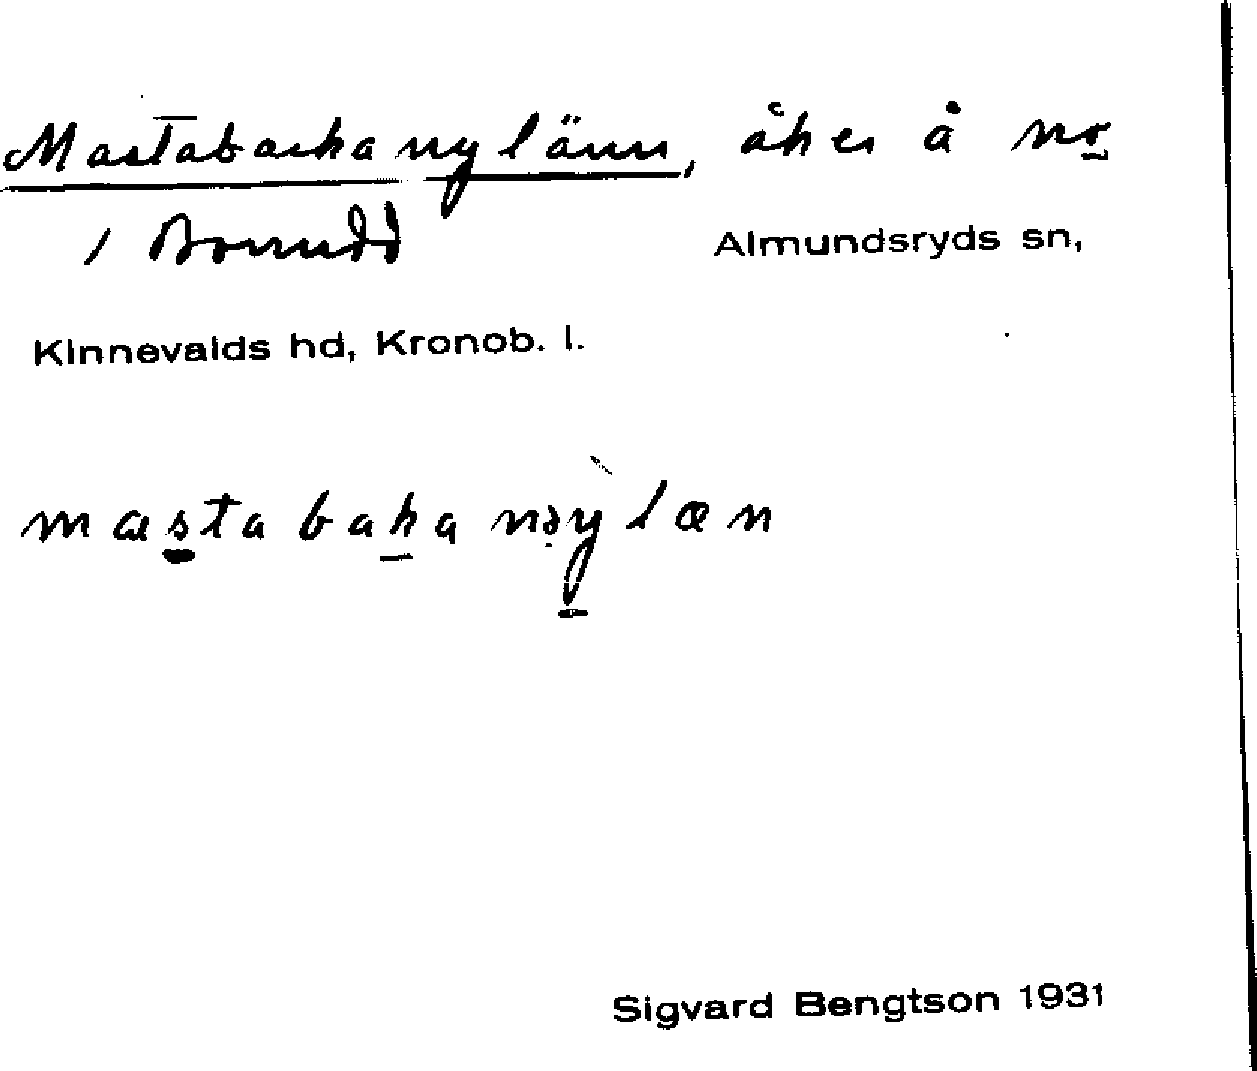 Mastabacka nylänn, åker å no
1 Brorudd
Almundsryds sn,
Kinnevalds hd, Kronob. l.
mastabaka nəylæn
Sigvard Bengtson 1931